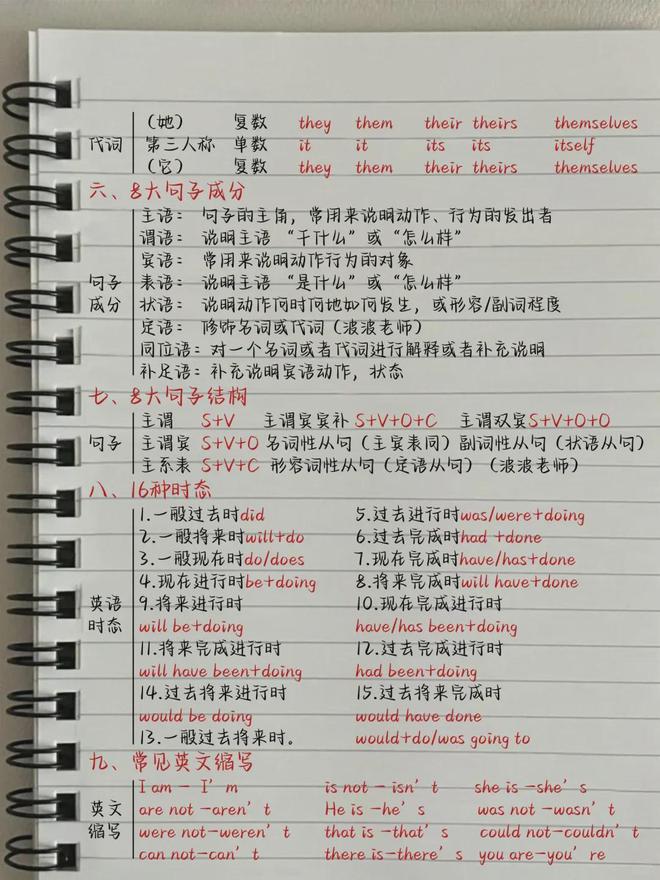 （她） 复数 they them their theirs themselves
代词 第三人称 单数 it it its its itself
（它） 复数 they them their theirs themselves
六、8大句子成分
主语： 句子的主角，常用来说明动作、行为的发出者
谓语： 说明主语“干什么”或“怎么样”
宾语： 常用来说明动作行为的对象
句子 表语： 说明主语“是什么”或“怎么样”
成分 状语： 说明动作何时何地如何发生，或形容/副词程度
定语： 修饰名词或代词（波波老师）
同位语：对一个名词或者代词进行解释或者补充说明
补足语：补充说明宾语动作，状态
七、8大句子结构
主谓 S+V 主谓宾宾补 S+V+O+C 主谓双宾S+V+O+O
句子 主谓宾 S+V+O 名词性从句（主宾表同）副词性从句（状语从句）
主系表 S+V+C 形容词性从句（定语从句）（波波老师）
八、16种时态
1.一般过去时did 5.过去进行时was/were+doing
2.一般将来时will+do 6.过去完成时had +done
3.一般现在时do/does 7.现在完成时have/has+done
4.现在进行时be+doing 8.将来完成时will have+done
英语 9.将来进行时 10.现在完成进行时
时态 will be+doing have/has been+doing
11.将来完成进行时 12.过去完成进行时
will have been+doing had been+doing
14.过去将来进行时 15.过去将来完成时
would be doing would have done
13.一般过去将来时。 would+do/was going to
九、常见英文缩写
I am - I’m is not - isn’t she is -she’s
英文 are not -aren’t He is -he’s was not -wasn’t
缩写 were not-weren’t that is -that’s could not-couldn’t
can not-can’t there is-there’s you are-you’re